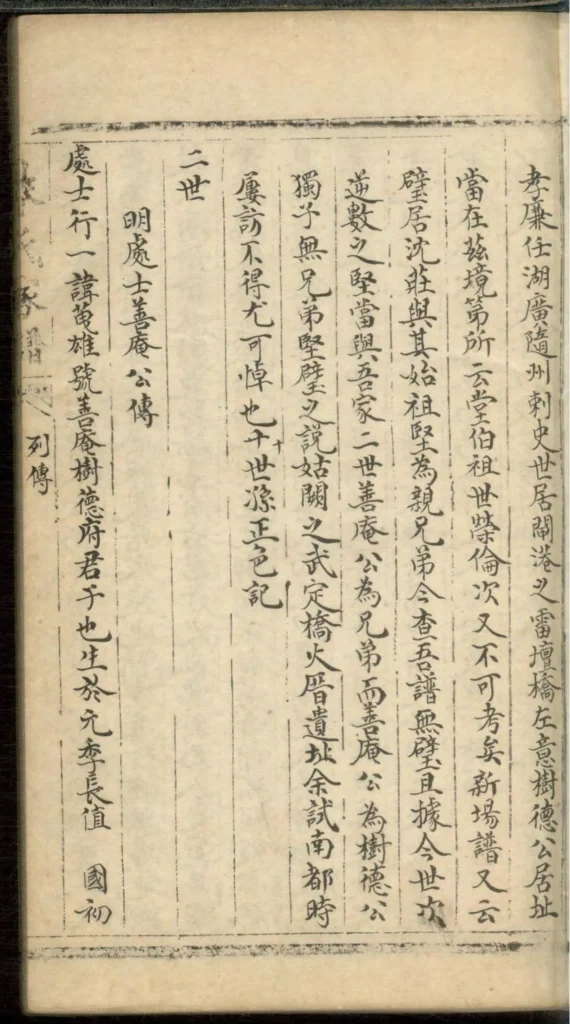 孝廉任湖廣隨州刺史世居閘港之雷壇橋左意樹德公居址
當在茲境第所云堂伯祖世榮倫次又不可考矣新場譜又云
璧居沈莊與其始祖堅為親兄弟今查吾譜無璧且據今世次
逆數之堅當與吾家二世善庵公為兄弟而善庵公為樹德公
獨子無兄弟堅璧之説姑闕之武定橋火厝遺址余試南都時
屢訪不得尤可悼也十世孫正色記
二世
明處士善庵公傳
處士行一諱 雄號善庵樹德府君子也生於元季長值 國初
列傳